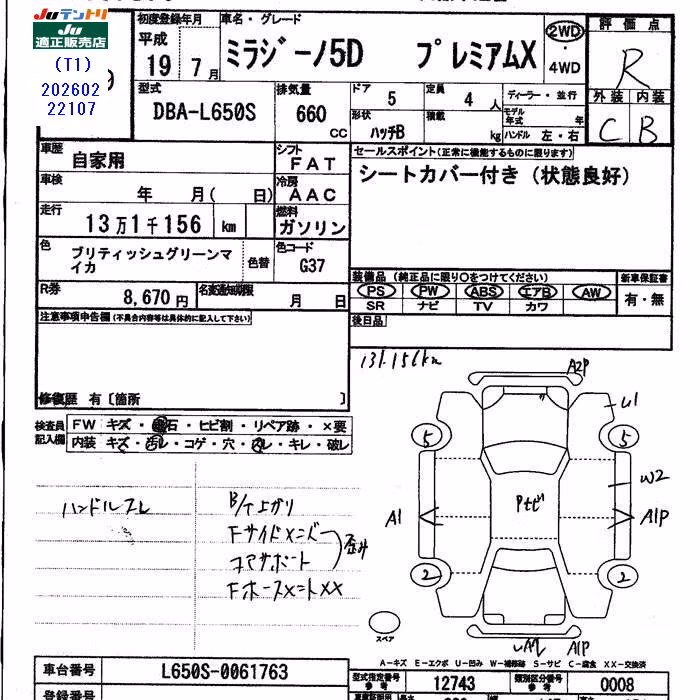 Juテントリ
JU適正販売店
(T1)
202602
22107
初度登録年月
平成
19年 7月
車名・グレード
ミラジーノ5D プレミアムX
2WD
・
4WD
評価点
R
外装 内装
C B
型式
DBA-L650S
排気量
660
CC
ドア 5
定員 4 人
ディーラー・並行
形状 ハッチB
積載 kg
モデル年式 年
ハンドル 左・右
車歴 自家用
シフト FAT
車検 年 月( 日)
冷房 AAC
走行 13万1千156 km
燃料 ガソリン
色 ブリティッシュグリーンマイカ
色替
色コード G37
R券 8,670円
名変通知期限 月 日
セールスポイント(正常に機能するものに限ります)
シートカバー付き(状態良好)
装備品(純正品に限り○をつけてください)
新車保証書
PS PW ABS エアB AW
SR ナビ TV カワ
有・無
後日品
注意事項申告欄(不具合内容等は具体的に記入して下さい)
修復歴 有〔箇所 〕
検査員記入欄
FW キズ・飛石・ヒビ割・リペア跡・×要
内装 キズ・汚レ・コゲ・穴・スレ・キレ・破レ
131,156km
A2P
U1
5 5
W2
Pセビ
A1
A1P
2 2
スペア
A1P
ハンドルスレ
B/T上がり
Fサイドメンバー
コアサポート
歪み
FホースメントXX
A-キズ E-エクボ U-凹み W-補修跡 S-サビ C-腐食 XX-交換済
車台番号 L650S-0061763
型式指定番号 参考 12743
類別区分番号 参考 0008
登録番号